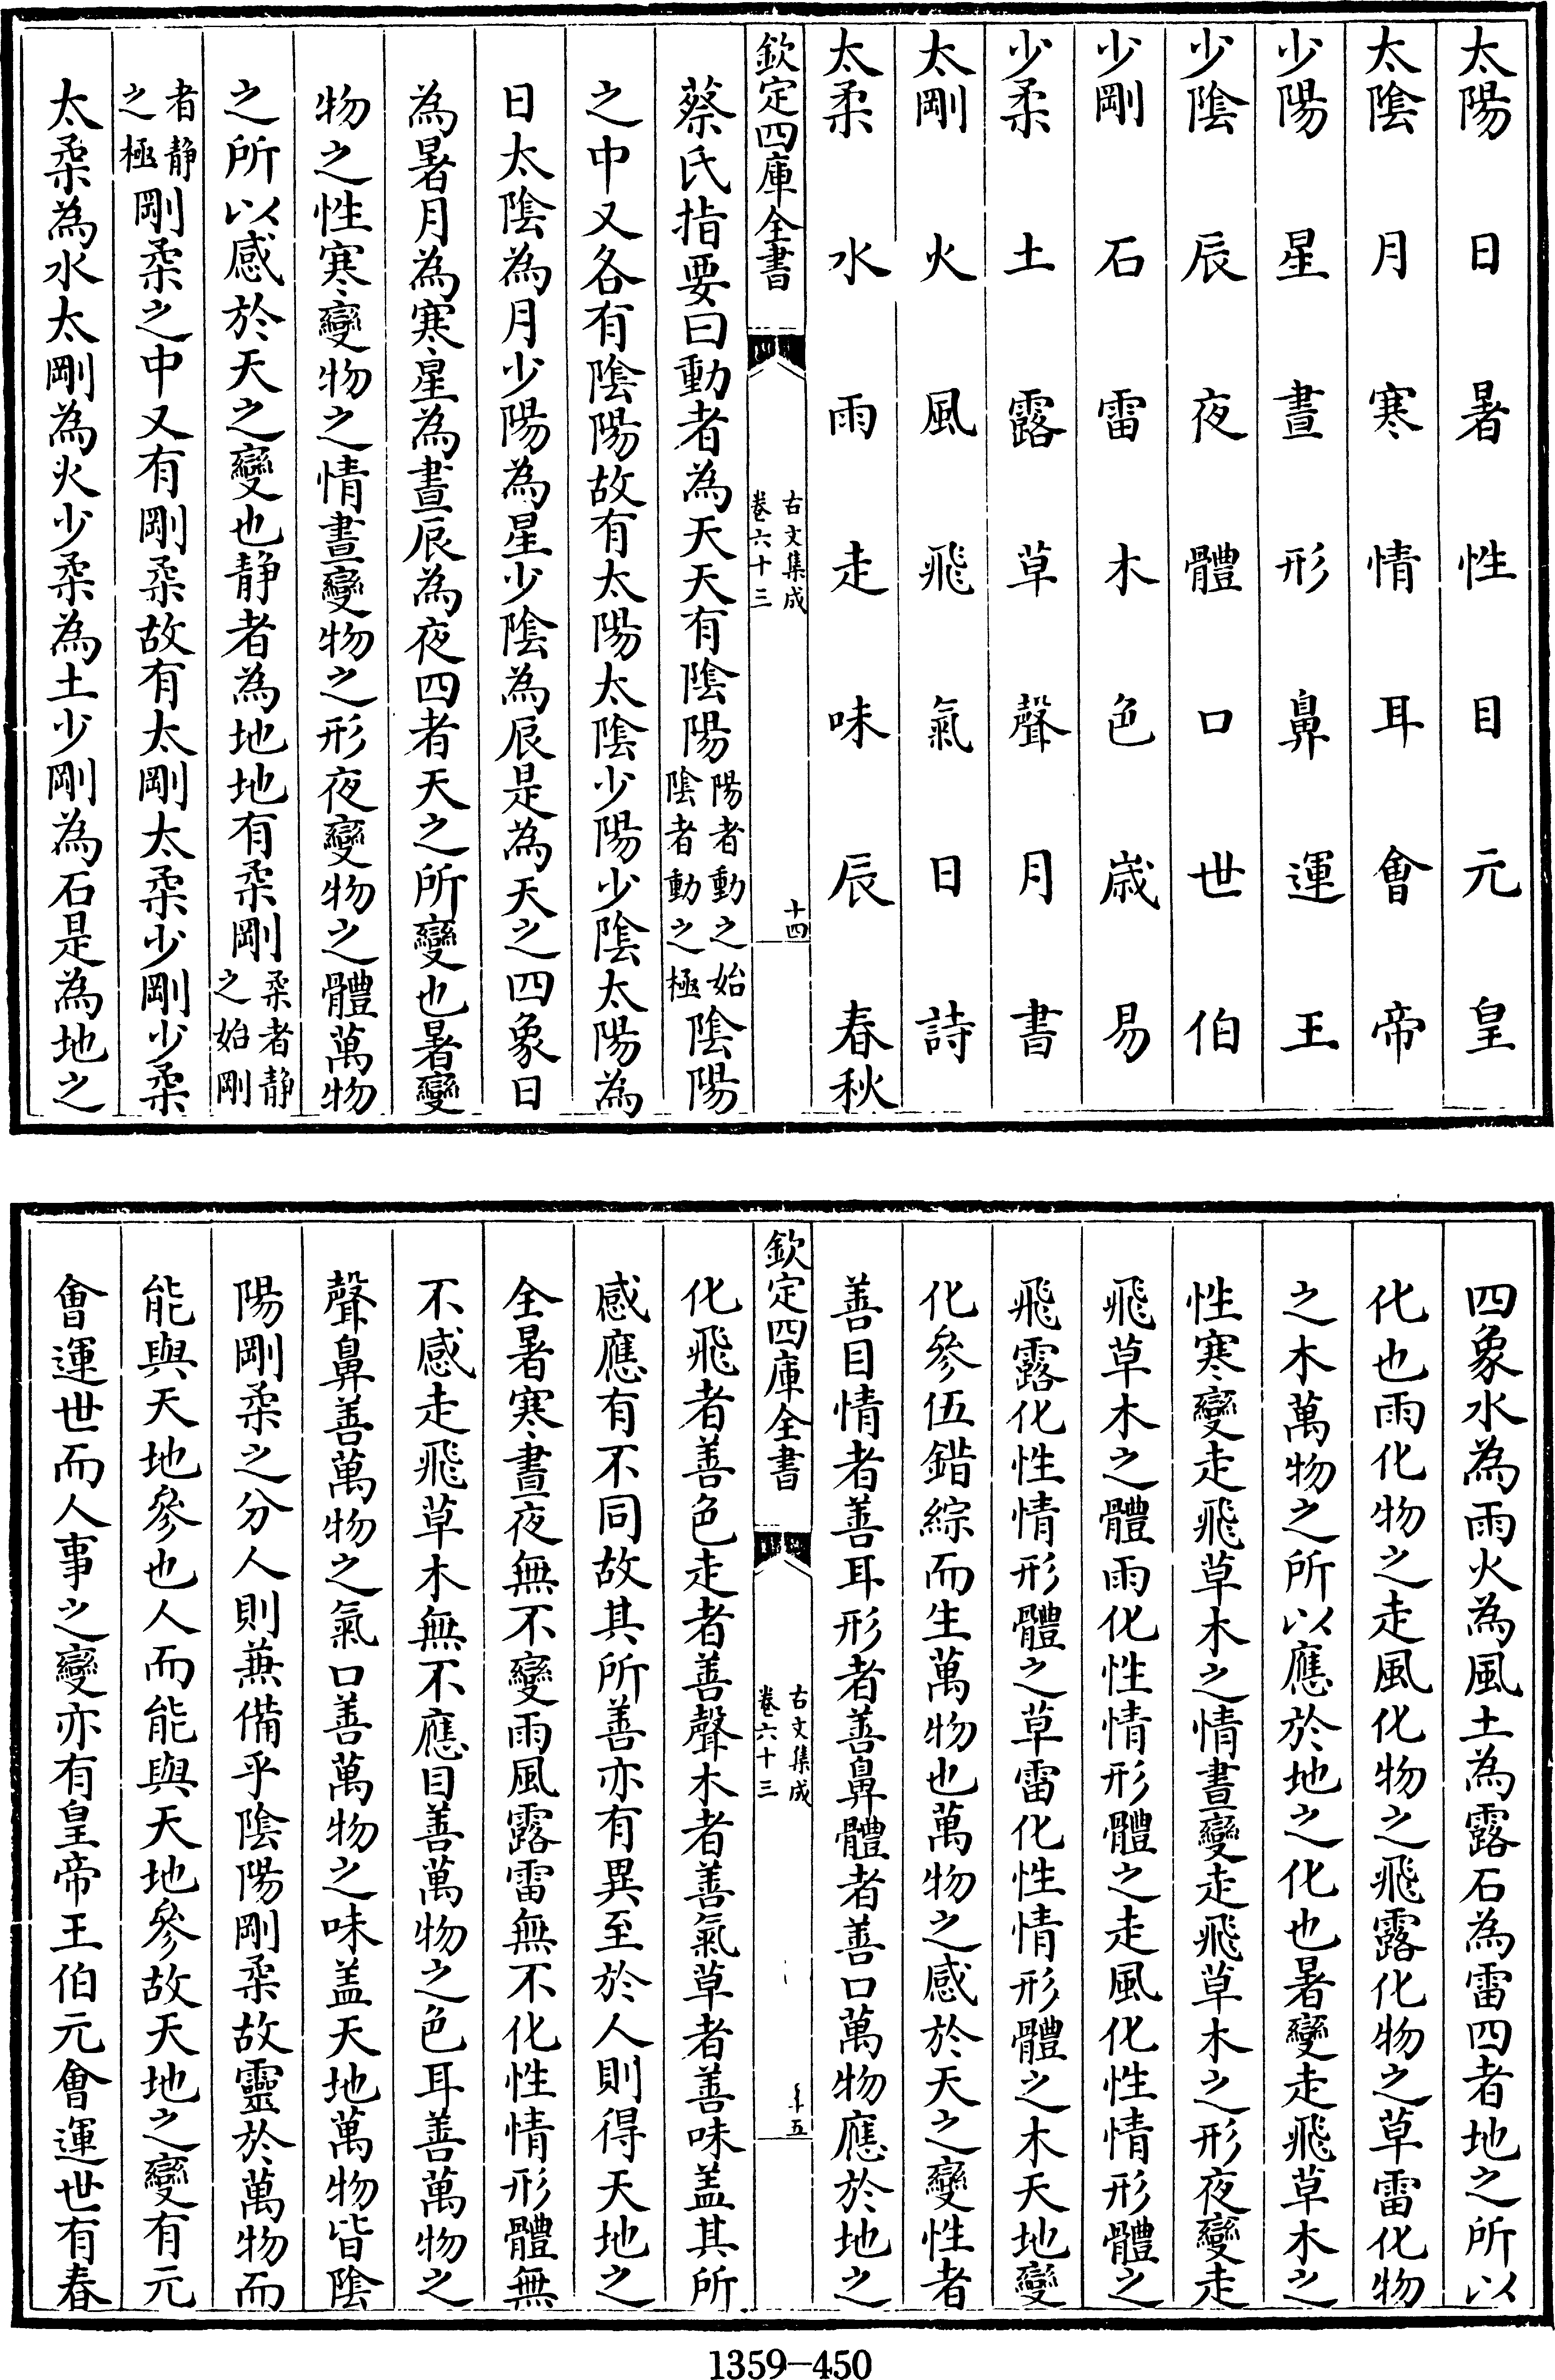 太陽　日　暑　性　目　元　皇
太陰　月　寒　情　耳　會　帝
少陽　星　晝　形　鼻　運　王
少陰　辰　夜　體　口　世　伯
少剛　石　雷　木　色　歳　易
少柔　土　露　草　聲　月　書
太剛　火　風　飛　氣　日　詩
太柔　水　雨　走　味　辰　春秋
欽定四庫全書　古文集成卷六十三　十四
蔡氏指要曰動者為天天有陰陽陽者動之始陰者動之極陰陽
之中又各有陰陽故有太陽太陰少陽少陰太陽為
日太陰為月少陽為星少陰為辰是為天之四象日
為暑月為寒星為晝辰為夜四者天之所變也暑變
物之性寒變物之情晝變物之形夜變物之體萬物
之所以感於天之變也静者為地地有柔剛柔者静之始剛
者静之極剛柔之中又有剛柔故有太剛太柔少剛少柔
太柔為水太剛為火少柔為土少剛為石是為地之
四象水為雨火為風土為露石為雷四者地之所以
化也雨化物之走風化物之飛露化物之草雷化物
之木萬物之所以應於地之化也暑變走飛草木之
性寒變走飛草木之情晝變走飛草木之形夜變走
飛草木之體雨化性情形體之走風化性情形體之
飛露化性情形體之草雷化性情形體之木天地變
化參伍錯綜而生萬物也萬物之感於天之變性者
善目情者善耳形者善鼻體者善口萬物應於地之
欽定四庫全書　古文集成卷六十三　十五
化飛者善色走者善聲木者善氣草者善味盖其所
感應有不同故其所善亦有異至於人則得天地之
全暑寒晝夜無不變雨風露雷無不化性情形體無
不感走飛草木無不應目善萬物之色耳善萬物之
聲鼻善萬物之氣口善萬物之味盖天地萬物皆陰
陽剛柔之分人則兼備乎陰陽剛柔故靈於萬物而
能與天地參也人而能與天地參故天地之變有元
會運世而人事之變亦有皇帝王伯元會運世有春
1359—450